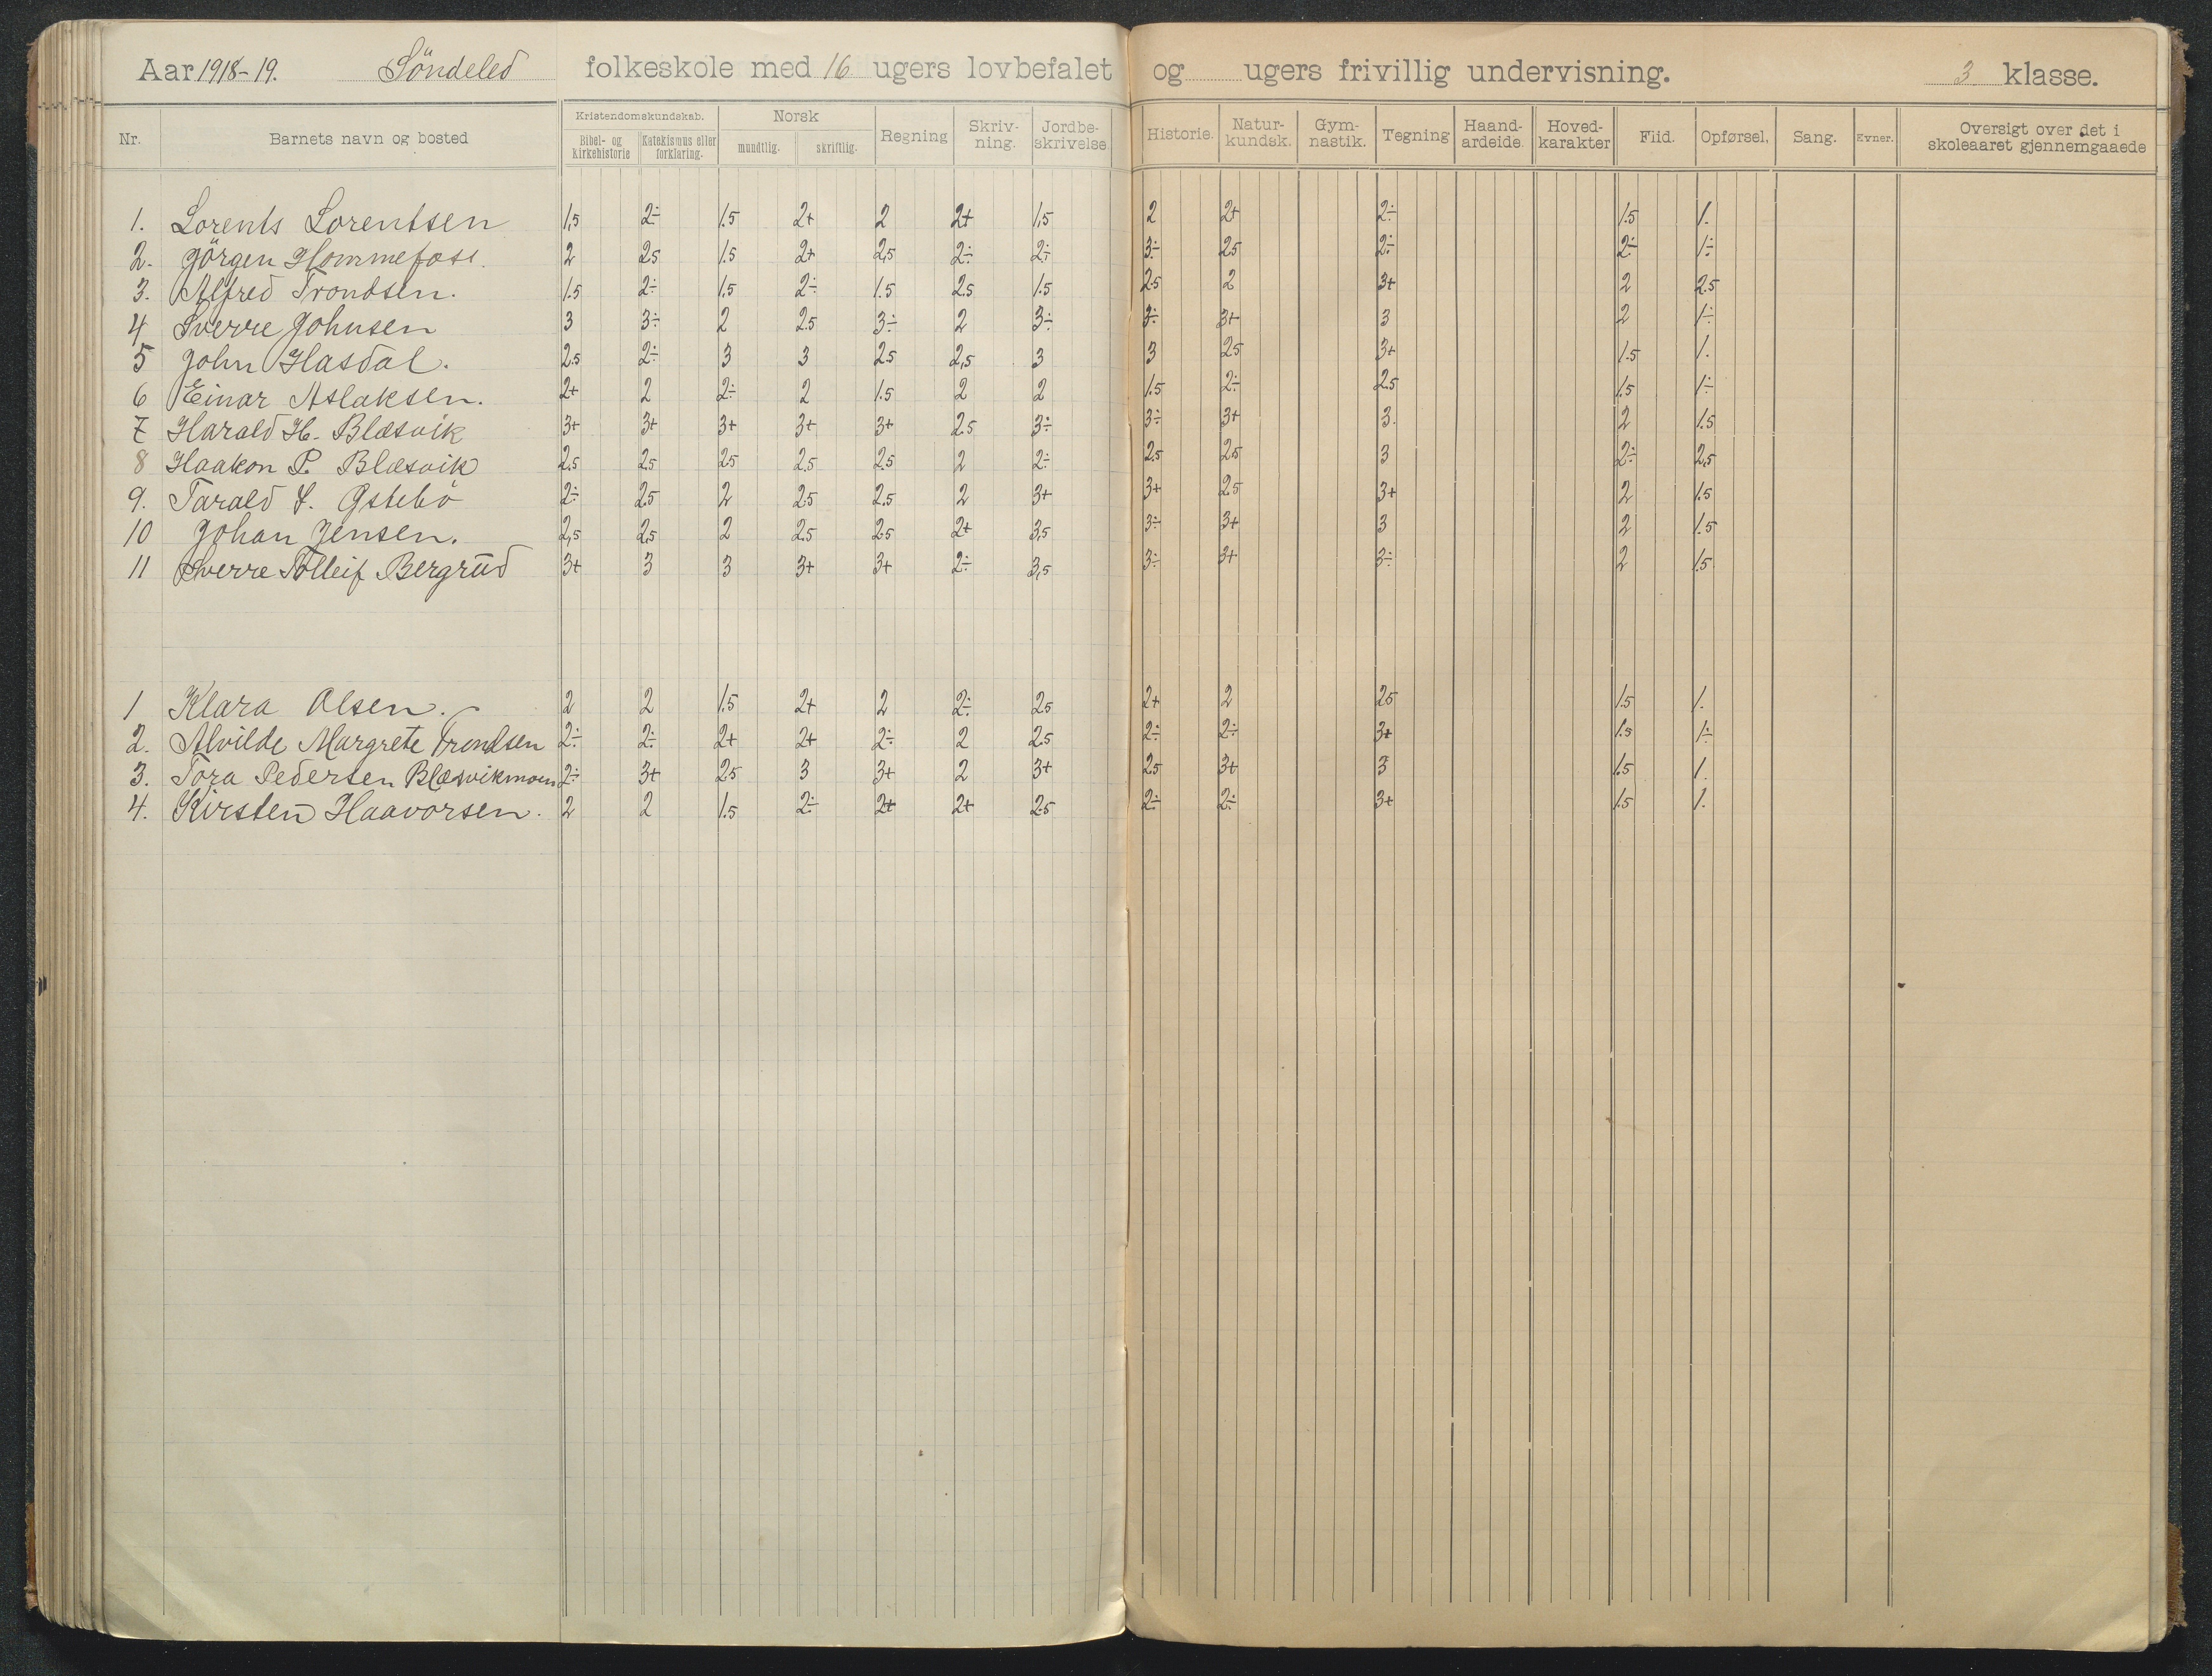 Aar 1918-19. Söndeled folkeskole med 16 ugers lovbefalet og ugers frivillig undervisning. 3 klasse.
Nr. Barnets navn og bosted Kristendomskundskab. Bibel- og kirkehistorie Katekismus eller forklaring. Norsk mundtlig. skriftlig. Regning Skriv-ning. Jordbe-skrivelse Historie. Natur-kundsk. Gym-nastik. Tegning Haand-arbeide. Hoved-karakter Flid. Opførsel. Sang. Evner. Oversigt over det i skoleaaret gjennemgaaede
1. Lorents Lorentsen 1,5 2÷ 1.5 2+ 2 2+ 1,5 2 2+ 2÷ 1.5 1.
2. Görgen Hommefoss. 2 2.5 1.5 2+ 2,5 2÷ 2÷ 3÷ 2.5 2÷ 2÷ 1÷
3. Alfred Trondsen. 1.5 2÷ 1,5 2÷ 1.5 2.5 1.5 2.5 2 3+ 2 2.5
4 Sverre Johnsen 3 3÷ 2 2.5 3÷ 2 3÷ 3÷ 3+ 3 2 1÷
5 John Hasdal. 2.5 2÷ 3 3 2.5 2,5 3 3 2.5 3+ 1.5 1.
6 Einar Aslaksen. 2+ 2 2÷ 2 1.5 2 2 1.5 2÷ 2.5 1.5 1÷
7 Harald H. Blæsvik 3+ 3+ 3+ 3+ 3+ 2.5 3÷ 3÷ 3+ 3. 2 1.5
8 Haakon P. Blæsvik 2,5 2.5 2.5 2.5 2.5 2 2÷ 2.5 2.5 3 2÷ 2,5
9. Tarald Østebö 2÷ 2.5 2 2.5 2.5 2 3+ 3+ 2.5 3+ 2 1.5
10 Johan Jensen. 2,5 2,5 2 2.5 2.5 2+ 3,5 3÷ 3+ 3 2 1.5
11 Sverre Tolleif Bergrud 3+ 3 3 3+ 3+ 2÷ 3,5 3÷ 3+ 3÷ 2 1.5
1 Klara Olsen. 2 2 1.5 2+ 2 2÷ 2.5 2+ 2 2.5 1.5 1.
2. Alvilde Margrete Trondsen 2÷ 2÷ 2+ 2+ 2÷ 2 2.5 2÷ 2÷ 3+ 1.5 1÷
3. Tora Pedersen Blæsvikmoen 2÷ 3+ 2.5 3 3+ 2 3+ 2.5 3+ 3 1.5 1.
4. Kirsten Haavorsen. 2 2 1.5 2÷ 2+ 2+ 2.5 2÷ 2÷ 3+ 1.5 1.